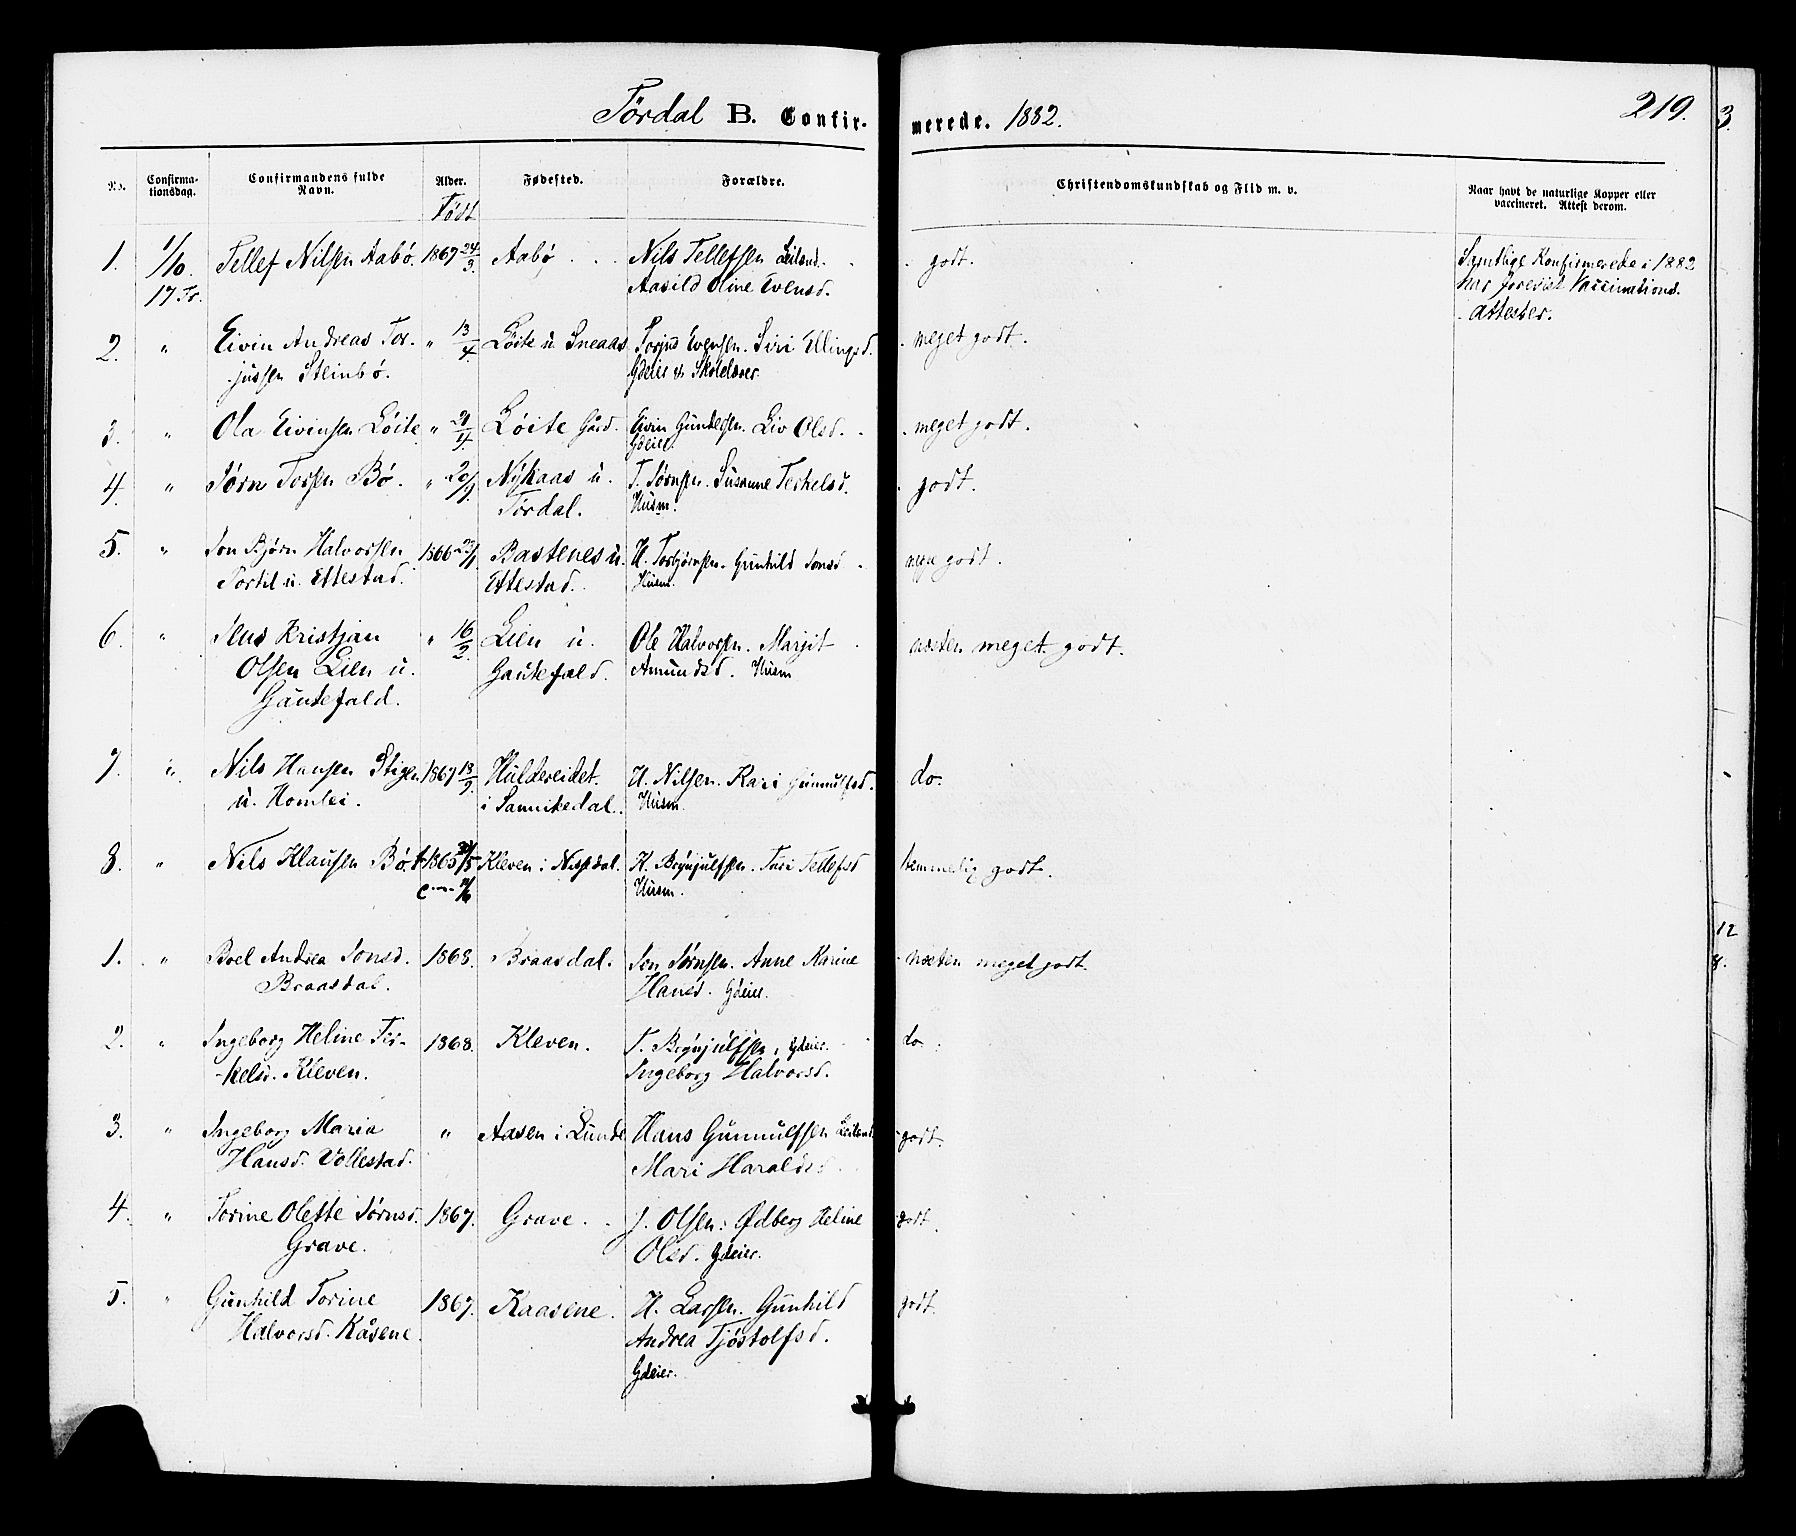 Tördal B. Confirmerede. 1882. 219.
No. Confirmationsdag. Confirmandens fulde Navn. Alder. Født Fødested. Forældre. Christendomskundskab og Flid m. v. Naar havt de naturlige Kopper eller vaccineret. Attest derom.
1. 1/10. 17 Tr. Tellef Nilsen Aabø. 1867 24/3. Aabø Nils Tellefsen Leilend. godt. Samtlige Konfirmerede i 1882
Aasild Oline Evensd. har forevist Vaccinations-
attester.
2. " Eivin Andreas Tor- " 13/4 Löite u. Sneaas Torjus Evensen. Siri Ellingsd. meget godt.
jussen Steinbø. Gdeier & Skolelærer
3. " Ola Eivinsen Löite " 21/4. Löite Gård. Eivin Gundersen. Liv Olsd. meget godt.
Gdeier.
4. " Jørn Torsen Bø. " 20/9. Nykaas u. T. Jørnsen. Susanne Terkelsd. godt.
Tördal. Husm.
5. " Jon Bjørn Halvorsen 1866 Bastenes u. H. Torbjørnsen. Gunhild Jonsd godt.
Tortil u. Ettestad. Ettestad. Husm.
6. " Jens Kristjan " 16/2. Lien u. Ole Halvorsen. Margit næsten meget godt.
Olsen Lien u. Gautefald. Amundsd. Husm
Gautefald.
7. " Nils Hansen Stigen 1867 13/9 Huldereidet. H. Nilsen. Kari Gunnulfsd. do.
u. Homlei. i Sannikedal. Husm.
8. " Nils Klausen Bø. 1865 Kleven i Nissedal. K. Brynjulfsen. Turi Tellefsd temmelig godt.
Husm.
1. " Boel Andrea Jonsd. 1868. Braasdal. Jon Jørnsen. Anne Karine næsten meget godt.
Braasdal. Hansd. Gdeier.
2. " Ingeborg Heline Ter- 1868. Kleven. T. Brynjulfsen, Gdeier. do
kelsd. Kleven. Ingeborg Halvorsd.
3. " Ingeborg Maria " Aasen i Lunde Hans Gunnulfsen Leilend. godt.
Hansd. Vollestad. Mari Haraldsd.
4. " Torine Olette Jørnsd. 1867. Grave. J. Olsen: Ødberg Heline godt.
Grave. Olsd. Gdeier.
5. " Gunhild Torine 1867. Kaasene. H. Larsen. Gunhild godt.
Halvorsd. Kåsene. Andrea Tjöstolfsd.
Gdeier.
3.
12
8.